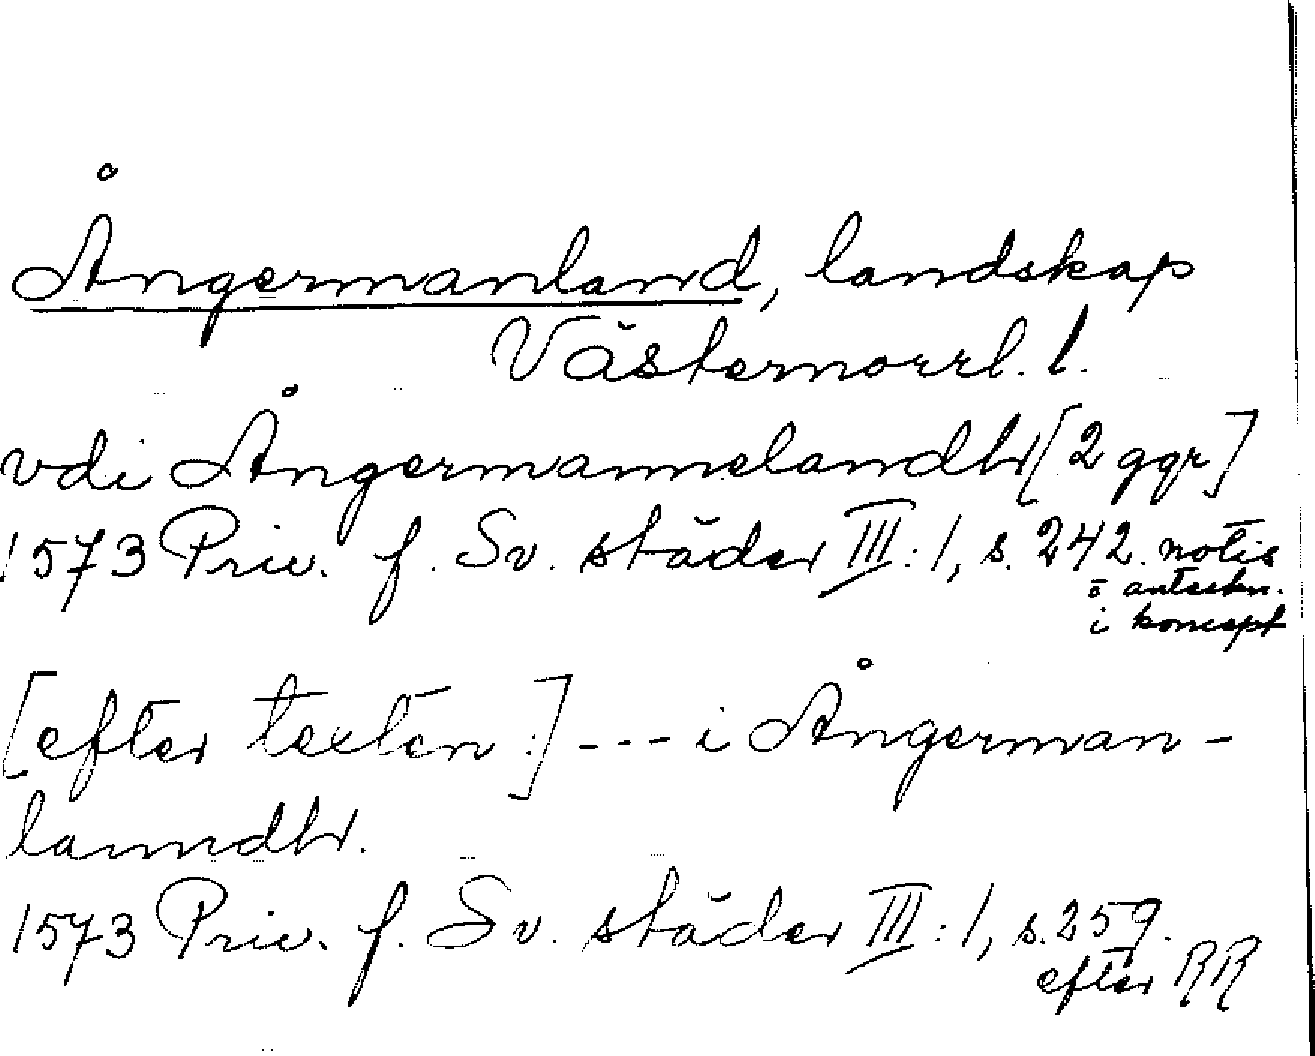 Ångermanland, landskap
Västernorrl. l.
vdi Ångermannelandh [2 ggr]
1573 Priv. f. Sv. städer III:1, s. 242. notis
o antekn.
i koncept
[efter texten:] --- i Ångerman-
lanndh.
1573 Priv. f. Sv. städer III:1, s. 259.
efter RR